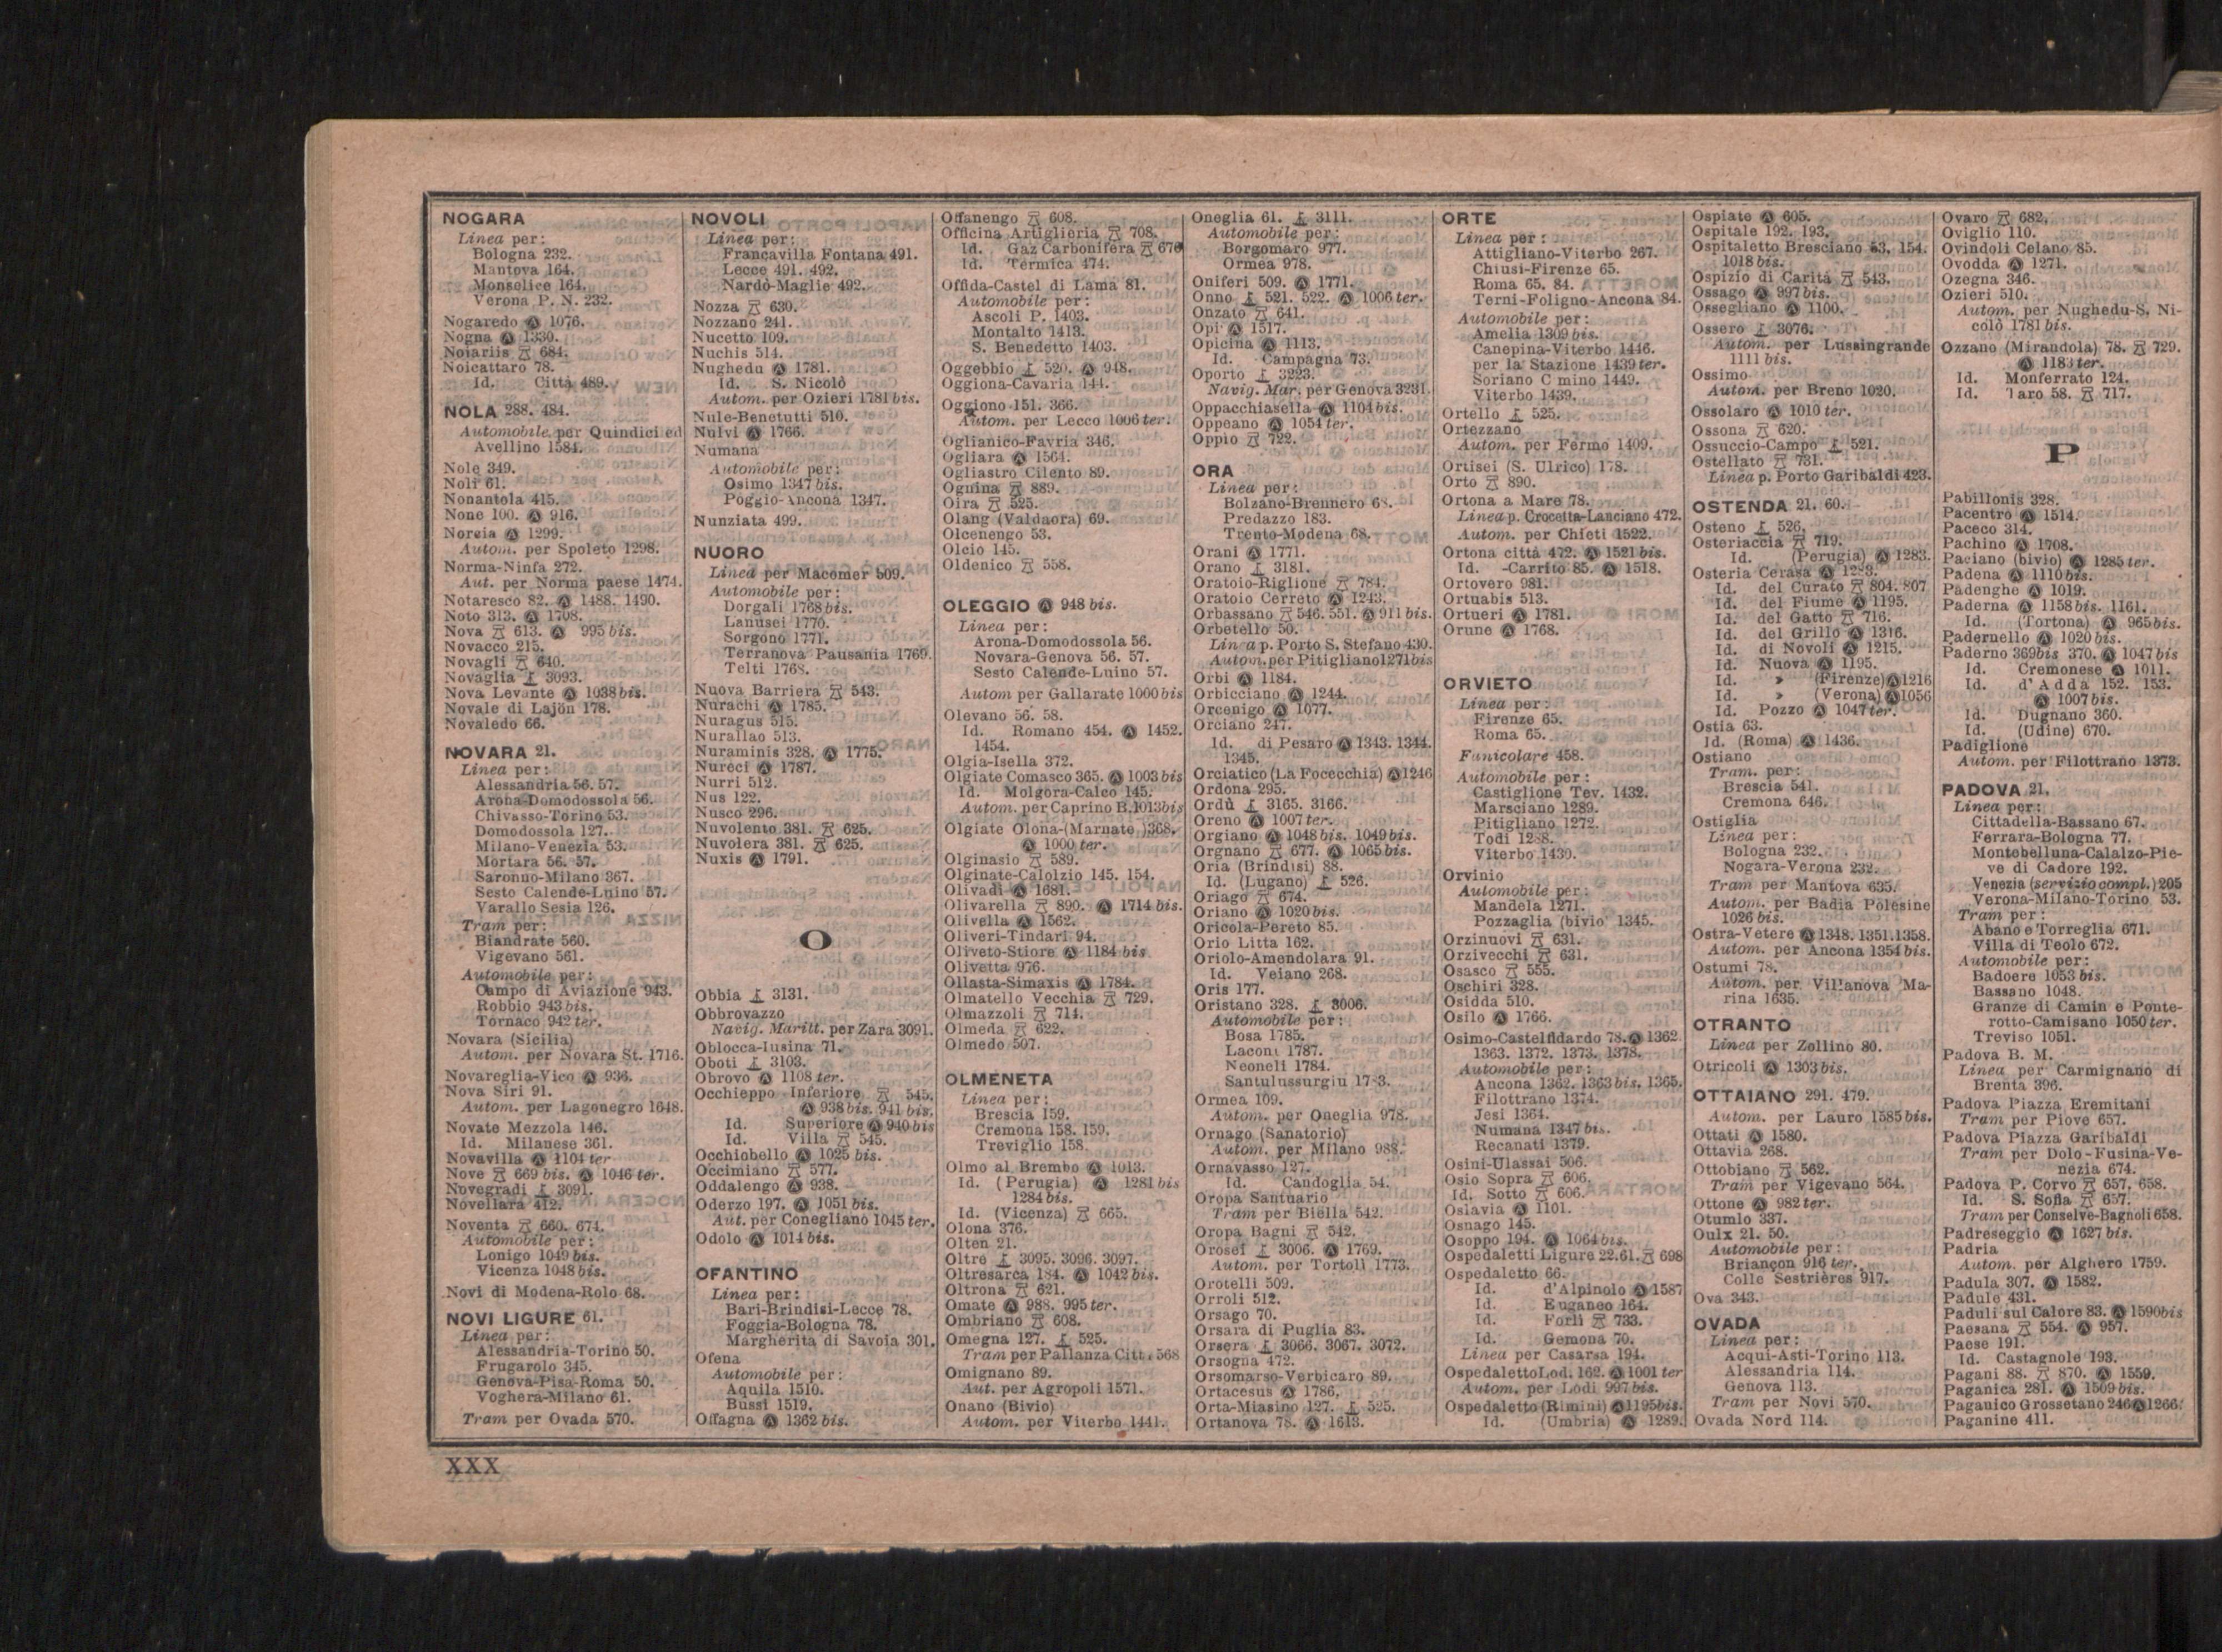 NOGARA
Linea per:
Bologna 232.
Mantova 164.
Monselice 164.
Verona P. N. 232.
Nogaredo Ⓐ 1076.
Nogna Ⓐ 1330.
Noiariis 684.
Noicattaro 78.
Id. Città 489.
NOLA 288. 484.
Automobile per Quindici ed
Avellino 1584.
Nole 349.
Noli 61.
Nonantola 415.
None 100. Ⓐ 916.
Norcia Ⓐ 1299.
Autom. per Spoleto 1298.
Norma-Ninfa 272.
Aut. per Norma paese 1474.
Notaresco 82. Ⓐ 1488. 1490.
Noto 313. Ⓐ 1708.
Nova 613. Ⓐ 995 bis.
Novacco 215.
Novagli 640.
Novaglia 3093.
Nova Levante Ⓐ 1038 bis.
Novale di Lajon 178.
Novaledo 66.
NOVARA 21.
Linea per:
Alessandria 56. 57.
Arona-Domodossola 56.
Chivasso-Torino 53.
Domodossola 127.
Milano-Venezia 53.
Mortara 56. 57.
Saronno-Milano 367.
Sesto Calende-Luino 57.
Varallo Sesia 126.
Tram per:
Biandrate 560.
Vigevano 561.
Automobile per:
Campo di Aviazione 943.
Robbio 943 bis.
Tornaco 942 ter.
Novara (Sicilia)
Autom. per Novara St. 1716.
Novareglia-Vico Ⓐ 936.
Nova Siri 91.
Autom. per Lagonegro 1648.
Novate Mezzola 146.
Id. Milanese 361.
Novavilla Ⓐ 1104 ter
Nove 669 bis. Ⓐ 1046 ter.
Novegradi 3091.
Novellara 412.
Noventa 660. 674.
Automobile per:
Lonigo 1049 bis.
Vicenza 1048 bis.
Novi di Modena-Rolo 68.
NOVI LIGURE 61.
Linea per:
Alessandria-Torino 50.
Frugarolo 345.
Genova-Pisa-Roma 50.
Voghera-Milano 61.
Tram per Ovada 570.
NOVOLI
Linea per:
Francavilla Fontana 491.
Lecce 491. 492.
Nardò-Maglie 492.
Nozza 630.
Nozzano 241.
Nucetto 109.
Nuchis 514.
Nughedu Ⓐ 1781.
Id. S. Nicolò
Autom. per Ozieri 1781 bis.
Nule-Benetutti 510.
Nulvi Ⓐ 1766.
Numana
Automobile per:
Osimo 1347 bis.
Poggio-Ancona 1347.
Nunziata 499.
NUORO
Linea per Macomer 509.
Automobile per:
Dorgali 1768 bis.
Lanusei 1770.
Sorgono 1771.
Terranova Pausania 1769.
Telti 1768.
Nuova Barriera 543.
Nurachi Ⓐ 1785.
Nuragus 515.
Nurallao 513.
Nuraminis 328. Ⓐ 1775.
Nureci Ⓐ 1787.
Nurri 512.
Nus 122.
Nusco 296.
Nuvolento 381. 625.
Nuvolera 381. 625.
Nuxis Ⓐ 1791.
O
Obbia 3131.
Obbrovazzo
Navig. Maritt. per Zara 3091.
Oblocca-Iusina 71.
Oboti 3103.
Obrovo Ⓐ 1108 ter.
Occhieppo Inferiore 545.
Ⓐ 938 bis. 941 bis.
Id. Superiore Ⓐ 940 bis
Id. Villa 545.
Occhiobello Ⓐ 1025 bis.
Occimiano 577.
Oddalengo Ⓐ 938.
Oderzo 197. Ⓐ 1051 bis.
Aut. per Conegliano 1045 ter.
Odolo Ⓐ 1014 bis.
OFANTINO
Linea per:
Bari-Brindisi-Lecce 78.
Foggia-Bologna 78.
Margherita di Savoia 301.
Ofena
Automobile per:
Aquila 1510.
Bussi 1519.
Offagna Ⓐ 1362 bis.
Offanengo 608.
Officina Artiglieria 708.
Id. Gaz Carbonifera 676
Id. Termica 474.
Offida-Castel di Lama 81.
Automobile per:
Ascoli P. 1403.
Montalto 1413.
S. Benedetto 1403.
Oggebbio 520. Ⓐ 948.
Oggiona-Cavaria 144.
Oggiono 151. 366.
Autom. per Lecco 1006 ter.
Oglianico-Favria 346.
Ogliara Ⓐ 1564.
Ogliastro Cilento 89.
Ognina 889.
Oira 525.
Olang (Valdaora) 69.
Olcenengo 53.
Olcio 145.
Oldenico 558.
OLEGGIO Ⓐ 948 bis.
Linea per:
Arona-Domodossola 56.
Novara-Genova 56. 57.
Sesto Calende-Luino 57.
Autom per Gallarate 1000 bis
Olevano 56. 58.
Id. Romano 454. Ⓐ 1452.
1454.
Olgia-Isella 372.
Olgiate Comasco 365. Ⓐ 1003 bis
Id. Molgora-Calco 145.
Autom. per Caprino B. 1013 bis
Olgiate Olona-(Marnate) 368.
Ⓐ 1000 ter.
Olginasio 589.
Olginate-Calolzio 145. 154.
Olivadi Ⓐ 1681.
Olivarella 890. Ⓐ 1714 bis.
Olivella Ⓐ 1562.
Oliveri-Tindari 94.
Oliveto-Stiore Ⓐ 1184 bis
Olivetta 976.
Ollasta-Simaxis Ⓐ 1784.
Olmatello Vecchia 729.
Olmazzoli 714.
Olmeda 622.
Olmedo 507.
OLMENETA
Linea per:
Brescia 159.
Cremona 158. 159.
Treviglio 158.
Olmo al Brembo Ⓐ 1013.
Id. (Perugia) Ⓐ 1281 bis
1284 bis.
Id. (Vicenza) 665.
Olona 376.
Olten 21.
Oltre 3095. 3096. 3097.
Oltresarca 184. Ⓐ 1042 bis.
Oltrona 621.
Omate Ⓐ 988. 995 ter.
Ombriano 608.
Omegna 127. 525.
Tram per Pallanza Citt. 568
Omignano 89.
Aut. per Agropoli 1571.
Onano (Bivio)
Autom. per Viterbo 1441.
Oneglia 61. 3111.
Automobile per:
Borgomaro 977.
Ormea 978.
Oniferi 509. Ⓐ 1771.
Onno 521. 522. Ⓐ 1006 ter.
Onzato 641.
Opi Ⓐ 1517.
Opicina Ⓐ 1113.
Id. Campagna 73.
Oporto 3223.
Navig. Mar. per Genova 3231.
Oppacchiasella Ⓐ 1104 bis.
Oppeano Ⓐ 1054 ter.
Oppio 722.
ORA
Linea per:
Bolzano-Brennero 68.
Predazzo 183.
Trento-Modena 68.
Orani Ⓐ 1771.
Orano 3181.
Oratoio-Riglione 784.
Oratoio Cerreto Ⓐ 1243.
Orbassano 546. 551. Ⓐ 911 bis.
Orbetello 50.
Lin a p. Porto S. Stefano 430.
Autom. per Pitigliano 1271 bis
Orbi Ⓐ 1184.
Orbicciano Ⓐ 1244.
Orcenigo Ⓐ 1077.
Orciano 247.
Id. di Pesaro Ⓐ 1343. 1344.
1345.
Orciatico (La Fococchia) Ⓐ 1246
Ordona 295.
Ordù 3165. 3166.
Oreno Ⓐ 1007 ter.
Orgiano Ⓐ 1048 bis. 1049 bis.
Orgnano 677. Ⓐ 1065 bis.
Oria (Brindisi) 88.
Id. (Lugano) 526.
Oriago 674.
Oriano Ⓐ 1020 bis.
Oricola-Pereto 85.
Orio Litta 162.
Oriolo-Amendolara 91.
Id. Veiano 268.
Oris 177.
Oristano 328. 3006.
Automobile per:
Bosa 1785.
Laconi 1787.
Neoneli 1784.
Santulussurgiu 17-3.
Ormea 109.
Autom. per Oneglia 978.
Ornago (Sanatorio)
Autom. per Milano 988.
Ornavasso 127.
Id. Candoglia 54.
Oropa Santuario
Tram per Biella 542.
Oropa Bagni 542.
Orosei 3006. Ⓐ 1769.
Autom. per Tortolì 1773.
Orotelli 509.
Orroli 512.
Orsago 70.
Orsara di Puglia 83.
Orsera 3066. 3067. 3072.
Orsogna 472.
Orsomarso-Verbicaro 89.
Ortacesus Ⓐ 1786.
Orta-Miasino 127. 525.
Ortanova 78. Ⓐ 1613.
ORTE
Linea per:
Attigliano-Viterbo 267.
Chiusi-Firenze 65.
Roma 65. 84.
Terni-Foligno-Ancona 84.
Automobile per:
Amelia 1309 bis.
Canepina-Viterbo 1446.
per la Stazione 1439 ter.
Soriano C mino 1449.
Viterbo 1439.
Ortello 525.
Ortezzano
Autom. per Fermo 1409.
Ortisei (S. Ulrico) 178.
Orto 890.
Ortona a Mare 78.
Linea p. Crocetta-Lanciano 472.
Autom. per Chieti 1522.
Ortona città 472. Ⓐ 1521 bis.
Id. -Carrito 85. Ⓐ 1518.
Ortovero 981.
Ortuabis 513.
Ortueri Ⓐ 1781.
Orune Ⓐ 1768.
ORVIETO
Linea per:
Firenze 65.
Roma 65.
Funicolare 458.
Automobile per:
Castiglione Tev. 1432.
Marsciano 1289.
Pitigliano 1272.
Todi 1288.
Viterbo 1430.
Orvinio
Automobile per:
Mandela 1271.
Pozzaglia (bivio 1345.
Orzinuovi 631.
Orzivecchi 631.
Osasco 555.
Oschiri 328.
Osidda 510.
Osilo Ⓐ 1766.
Osimo-Castelfidardo 78. Ⓐ 1362
1363. 1372. 1373. 1378.
Automobile per:
Ancona 1362. 1363 bis. 1365.
Filottrano 1374.
Jesi 1364.
Numana 1347 bis.
Recanati 1379.
Osini-Ulassai 506.
Osio Sopra 606.
Id. Sotto 606.
Oslavia Ⓐ 1101.
Osnago 145.
Osoppo 194. Ⓐ 1064 bis.
Ospedaletti Ligure 22. 61. 698
Ospedaletto 66.
Id. d'Alpinolo Ⓐ 1587
Id. Euganeo 164.
Id. Forlì 733.
Id. Gemona 70.
Linea per Casarsa 194.
Ospedaletto Lod. 162. Ⓐ 1001 ter
Autom. per Lodi 997 bis.
Ospedaletto (Rimini) Ⓐ 1195 bis.
Id. (Umbria) Ⓐ 1289.
Ospiate Ⓐ 605.
Ospitale 192. 193.
Ospitaletto Bresciano 53. 154.
1018 bis.
Ospizio di Carità 543.
Ossago Ⓐ 997 bis.
Ossegliano Ⓐ 1100.
Ossero 3076.
Autom. per Lussingrande
1111 bis.
Ossimo
Autom. per Breno 1020.
Ossolaro Ⓐ 1010 ter.
Ossona 620.
Ossuccio-Campo 521.
Ostellato 731.
Linea p. Porto Garibaldi 423.
OSTENDA 21. 60.
Osteno 526.
Osteriaccia 719.
Id. (Perugia) Ⓐ 1283.
Osteria Cerasa Ⓐ 1283.
Id. del Curato 804. 807
Id. del Fiume Ⓐ 1195.
Id. del Gatto 716.
Id. del Grillo Ⓐ 1316.
Id. di Novoli Ⓐ 1215.
Id. Nuova Ⓐ 1195.
Id. » (Firenze) Ⓐ 1216
Id. » (Verona) Ⓐ 1056
Id. Pozzo Ⓐ 1047 ter.
Ostia 63.
Id. (Roma) Ⓐ 1436.
Ostiano
Tram. per:
Brescia 541.
Cremona 646.
Ostiglia
Linea per:
Bologna 232.
Nogara-Verona 232.
Tram per Mantova 635.
Autom. per Badia Polesine
1026 bis.
Ostra-Vetere Ⓐ 1348. 1351. 1358.
Autom. per Ancona 1354 bis.
Ostumi 78.
Autom. per Villanova Ma-
rina 1635.
OTRANTO
Linea per Zollino 80.
Otricoli Ⓐ 1303 bis.
OTTAIANO 291. 479.
Autom. per Lauro 1585 bis.
Ottati Ⓐ 1580.
Ottavia 268.
Ottobiano 562.
Tram per Vigevano 564.
Ottone Ⓐ 982 ter.
Otumlo 337.
Oulx 21. 50.
Automobile per:
Briançon 916 ter.
Colle Sestrières 917.
Ova 343.
OVADA
Linea per:
Acqui-Asti-Torino 113.
Alessandria 114.
Genova 113.
Tram per Novi 570.
Ovada Nord 114.
Ovaro 682.
Oviglio 110.
Ovindoli Celano 85.
Ovodda Ⓐ 1271.
Ozegna 346.
Ozieri 510.
Autom. per Nughedu-S. Ni-
colò 1781 bis.
Ozzano (Mirandola) 78. 729.
Ⓐ 1183 ter.
Id. Monferrato 124.
Id. Taro 58. 717.
P
Pabillonis 328.
Pacentro Ⓐ 1514.
Paceco 314.
Pachino Ⓐ 1708.
Paciano (bivio) Ⓐ 1285 ter.
Padena Ⓐ 1110 bis.
Padenghe Ⓐ 1019.
Paderna Ⓐ 1158 bis. 1161.
Id. (Tortona) Ⓐ 965 bis.
Padernello Ⓐ 1020 bis.
Paderno 369 bis 370. Ⓐ 1047 bis
Id. Cremonese Ⓐ 1011.
Id. d'Adda 152. 153.
Ⓐ 1007 bis.
Id. Dugnano 360.
Id. (Udine) 670.
Padiglione
Autom. per Filottrano 1373.
PADOVA 21.
Linea per:
Cittadella-Bassano 67.
Ferrara-Bologna 77.
Montebelluna-Calalzo-Pie-
ve di Cadore 192.
Venezia (servizio compl.) 205
Verona-Milano-Torino 53.
Tram per:
Abano e Torreglia 671.
Villa di Teolo 672.
Automobile per:
Badoere 1053 bis.
Bassano 1048.
Granze di Camin e Ponte-
rotto-Camisano 1050 ter.
Treviso 1051.
Padova B. M.
Linea per Carmignano di
Brenta 396.
Padova Piazza Eremitani
Tram per Piove 657.
Padova Piazza Garibaldi
Tram per Dolo-Fusina-Ve-
nezia 674.
Padova P. Corvo 657. 658.
Id. S. Sofia 657.
Tram per Conselve-Bagnoli 658.
Padreseggio Ⓐ 1627 bis.
Padria
Autom. per Alghero 1759.
Padula 307. Ⓐ 1582.
Padule 431.
Paduli sul Calore 83. Ⓐ 1590 bis
Paesana 554. Ⓐ 957.
Paese 191.
Id. Castagnole 193.
Pagani 88. 870. Ⓐ 1559.
Paganica 281. Ⓐ 1509 bis.
Paganico Grossetano 246 Ⓐ 1266.
Paganine 411.
XXX